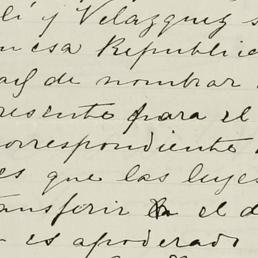 lí y Velazquez s
en esa Republica
de nombrar
resente para el
orrespondiente
es que las leyes
ansferir el d
es apoderado